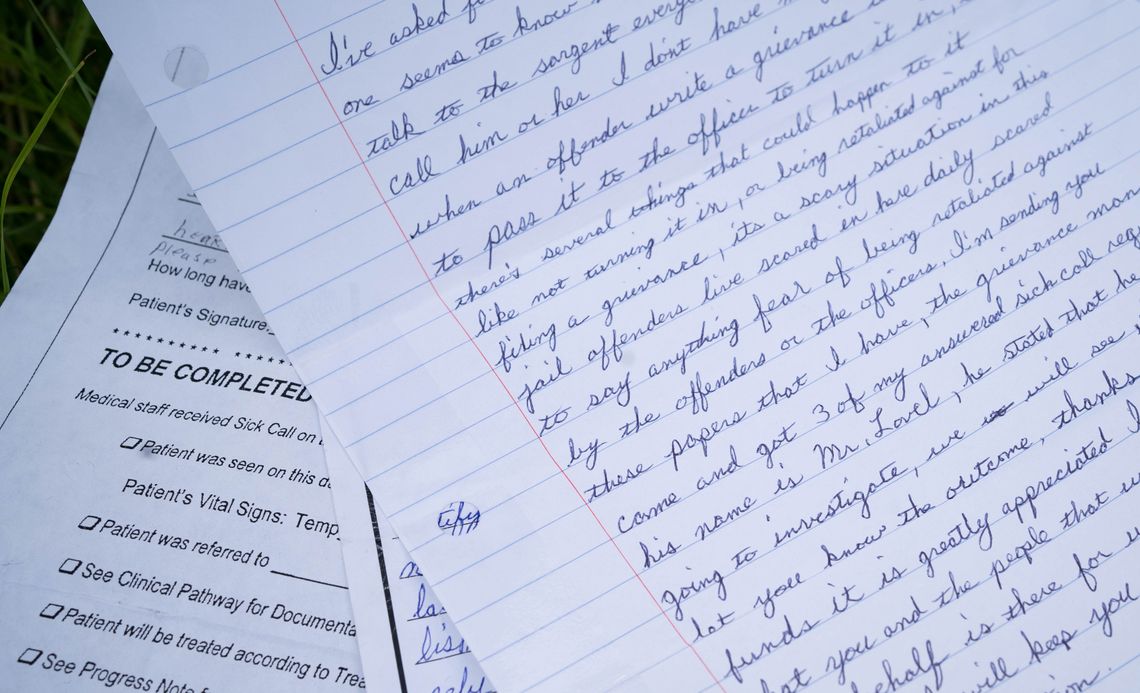 I've asked
one seems to know
talk to the sargent every
call him or her I don't have
when an offender write a grievance
to pass it to the officer to turn it in,
there's several things that could happen to it
like not turning it in, or being retaliated against for
filing a grievance, it's a scary situation in this
jail offenders live scared in here daily scared
to say anything fear of being retaliated against
by the offenders or the officers, I'm sending you
these papers that I have, the grievance man
came and got 3 of my answered sick call req
his name is Mr. Lovel, he stated that he
going to investigate, we will see,
let you know the outcome, thanks
funds it is greatly appreciated I
hat you and the people that
behalf is there for u
will keep you
on.
please
How long have
Patient's Signature:
********* *****
TO BE COMPLETED
Medical staff received Sick Call on
Patient was seen on this da
Patient's Vital Signs: Temp
Patient was referred to
See Clinical Pathway for Documenta
Patient will be treated according to Trea
See Progress Note f
tify
la
liss